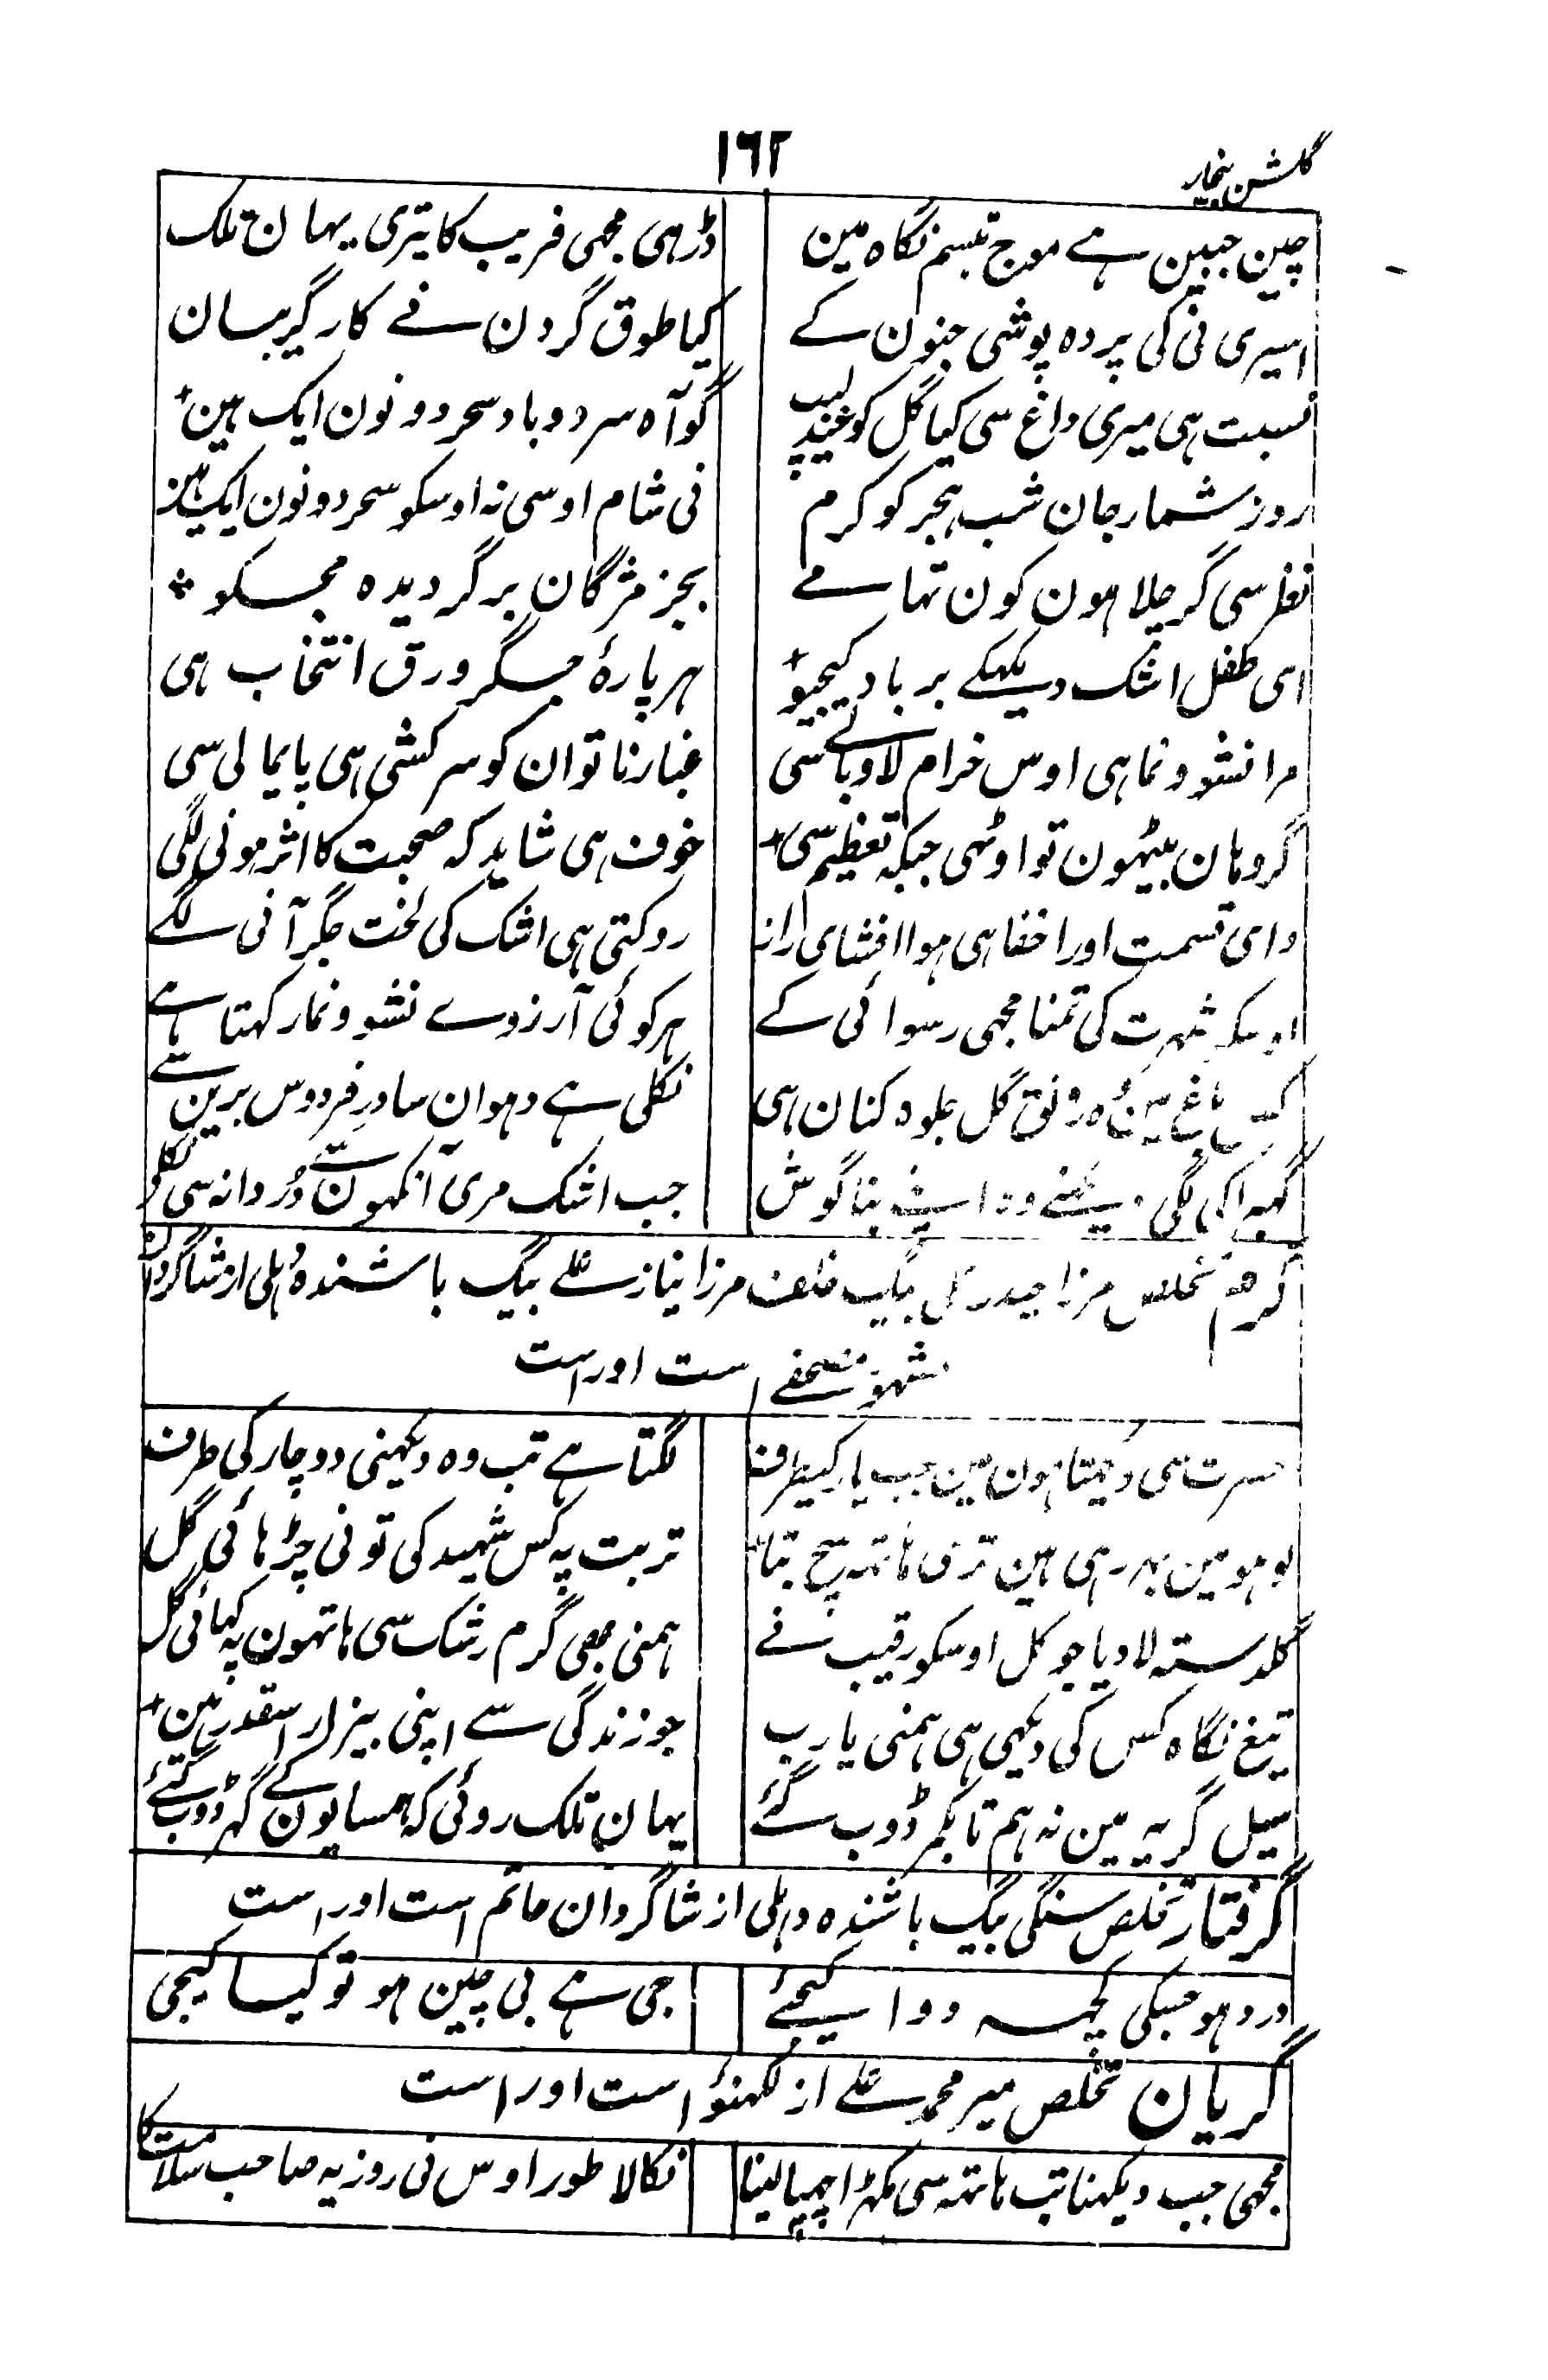 گلشن بیخار
۱۶۲
چین جبین ہے موج تبسم نگاہ مین
ڈر ہی مجہی فریب کا یتری یہان تلک
اسیری نی کی پردہ پوشی جنون کے
کیا طوق گردن نے کار گریبان
نسبت ہی میری داغ سی کیا گل کو عندلیب
گو آہ سرد و باد سحر دونون ایک ہین
روز شمار جان شب ہجر کو کرم
نی شام اوسی نہ اوسکو سحر دونون ایک ہین
نظر سی گر چلا ہون کون تہامے
بجز مژگان برگردیدہ مجسکو
ای طفل اشک دیکہکے برباد کیجیو
ہر پارۂ جگر ورق انتخاب ہی
مرا نشو و نما ہی اوس خرام لاوبالے سی
غبار ناتوان کو سرکشی ہی پایمالی سی
گر وہان بیٹہون تو اوٹہی جبکہ تعظیم سی
خوف ہی شاید کہ صحبت کا اثر ہونی لگی
وای قسمت اور اخفا ہی ہوا افشای راز
روکتی ہی اشک کی لخت جگر آنی لگے
شہرت کی تمنا مجہی رسوائی کے
ہر کوئی آرزوے نشو و نما رکہتا ہے
کس باغ مین وہ رونق گل جلوہ کنان ہی
نکلی ہے دہوان سا در فردوس برین سے
لگی دیکہنے وہ اپنے بناگوش
جب اشک مری آنکہون سے دُر دانہ سی نکلی
کرم تخلص مرزا حیدر علی بیگ خلف مرزا نیاز علے بیگ باشندہ دہلی از شاگردان
مصحفے است اوراست
حسرت سی دیکہتا ہون مین جب یار کیطرف
لگتا ہے تب وہ دیکہنی دو چار کی طرف
لوہو مین بہر رہی ہین تری ہاتہہ سچ بتا
تربت پہ کس شہید کی تونی چڑہائی گل
گلدستہ لا دیا جو کل اوسکو رقیب نے
ہمنی بھی گرم رشک سی ہاتہون پہ کہائی گل
تیغ نگاہ کس کی دیکہی ہی ہمنی یارب
جو زندگی سے اپنی بیزار اسقدر ہین
سیل گریہ مین نہ ہم تا بکمر ڈوب گئے
یہان تلک روئی کہ ہمسایون کے گہر ڈوب گئے
گرفتار تخلص سنگی بیگ باشندہ دہلی از شاگردان حاتم است اوراست
درد ہو جسکی کچہہ دوا کیجئے
جی ہے بی چین ہو تو کیسا کیجی
گریان تخلص میر محمد علے از لکہنؤ است اوراست
مجہی جب دیکہنا تب ہاتہہ سی مکہڑا چہپا لینا
نکالا طور اوس نی روز یہ صاحب سلامت کا